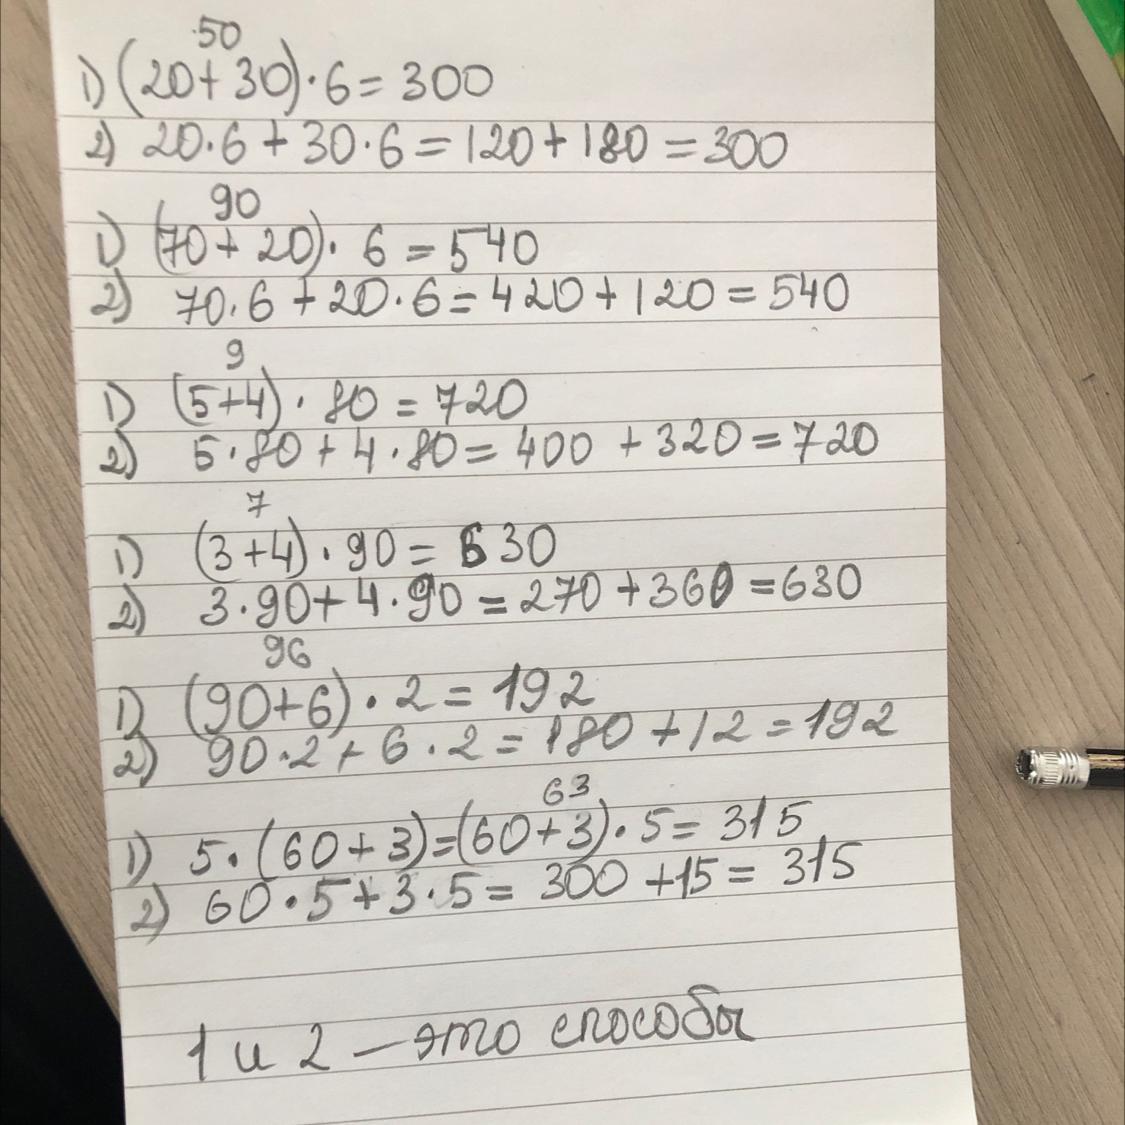 50
1) (20+30)·6=300
2) 20·6+30·6=120+180=300
90
1) (70+20)·6=540
2) 70·6+20·6=420+120=540
9
1) (5+4)·80=720
2) 5·80+4·80=400+320=720
7
1) (3+4)·90=630
2) 3·90+4·90=270+360=630
96
1) (90+6)·2=192
2) 90·2+6·2=180+12=192
63
1) 5·(60+3)=(60+3)·5=315
2) 60·5+3·5=300+15=315
1 и 2 — это способы